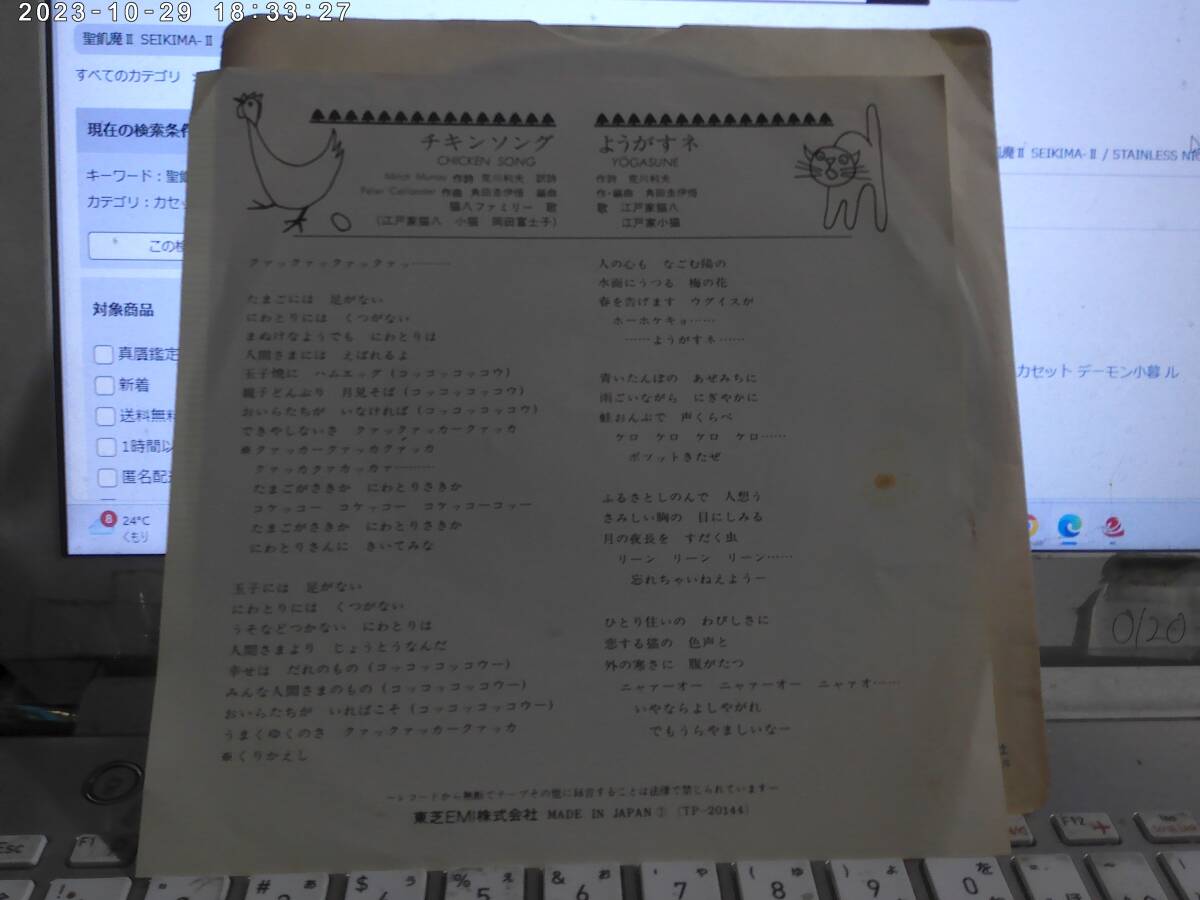 2023-10-29 18:33:27
聖飢魔Ⅱ SEIKIMA-Ⅱ
すべてのカテゴリ
現在の検索条件
キーワード：聖飢
カテゴリ：カセッ
この検
対象商品
真贋鑑定
新着
送料無料
1時間以
匿名配送
8
24°C
くもり
飢魔Ⅱ SEIKIMA-Ⅱ / STAINLESS NI
カセット デーモン小暮 ル
0/20
チキンソング
CHICKEN SONG
Mitch Murray 作詩 荒川利夫 訳詩
Peter Callander 作曲 角田圭伊悟 編曲
猫八ファミリー 歌
(江戸家猫八 小猫 岡田富士子)
クァックァックァックァッ………
たまごには 足がない
にわとりには くつがない
まぬけなようでも にわとりは
人間さまには えばれるよ
玉子焼に ハムエッグ (コッコッコッコウ)
親子どんぶり 月見そば (コッコッコッコウ)
おいらたちが いなければ (コッコッコッコウ)
できやしないさ クァックァッカークァッカ
※クァッカークァッカクァッカ
クァッカクァカッカァ………
たまごがさきか にわとりさきか
コケッコー コケッコー コケッコーコッー
たまごがさきか にわとりさきか
にわとりさんに きいてみな
玉子には 足がない
にわとりには くつがない
うそなどつかない にわとりは
人間さまより じょうとうなんだ
幸せは だれのもの (コッコッコッコウー)
みんな人間さまのもの (コッコッコッコウー)
おいらたちが いればこそ (コッコッコッコウー)
うまくゆくのさ クァックァッカークァッカ
※くりかえし
ようがすネ
YŌGASUNE
作詩 荒川利夫
作・編曲 角田圭伊悟
歌 江戸家猫八
江戸家小猫
人の心も なごむ陽の
水面にうつる 梅の花
春を告げます ウグイスが
ホーホケキョ……
……ようがすネ……
青いたんぼの あぜみちに
雨ごいながら にぎやかに
蛙おんぶで 声くらべ
ケロ ケロ ケロ ケロ……
ポツットきたぜ
ふるさとしのんで 人想う
さみしい胸の 目にしみる
月の夜長を すだく虫
リーン リーン リーン……
忘れちゃいねえよう－
ひとり住いの わびしさに
恋する猫の 色声と
外の寒さに 腹がたつ
ニャァーオー ニャァーオー ニャァオ……
いやならよしやがれ
でもうらやましいなー
－レコードから無断でテープその他に録音することは法律で禁じられています－
東芝EMI株式会社 MADE IN JAPAN ① (TP-20144)
Esc
F1
F12